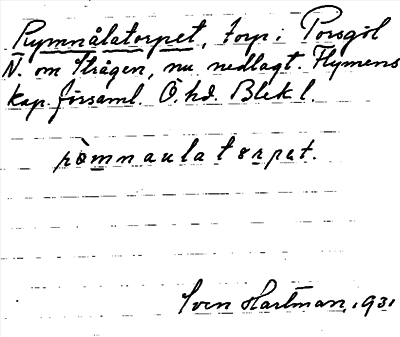 Rymnålatorpet, torp i Porsgöl
N. om Strågen, nu nedlagt. Flymens
kap. församl. Ö. hd. Blekl.
ròmnaulatorpet.
Sven Hartman, 1931